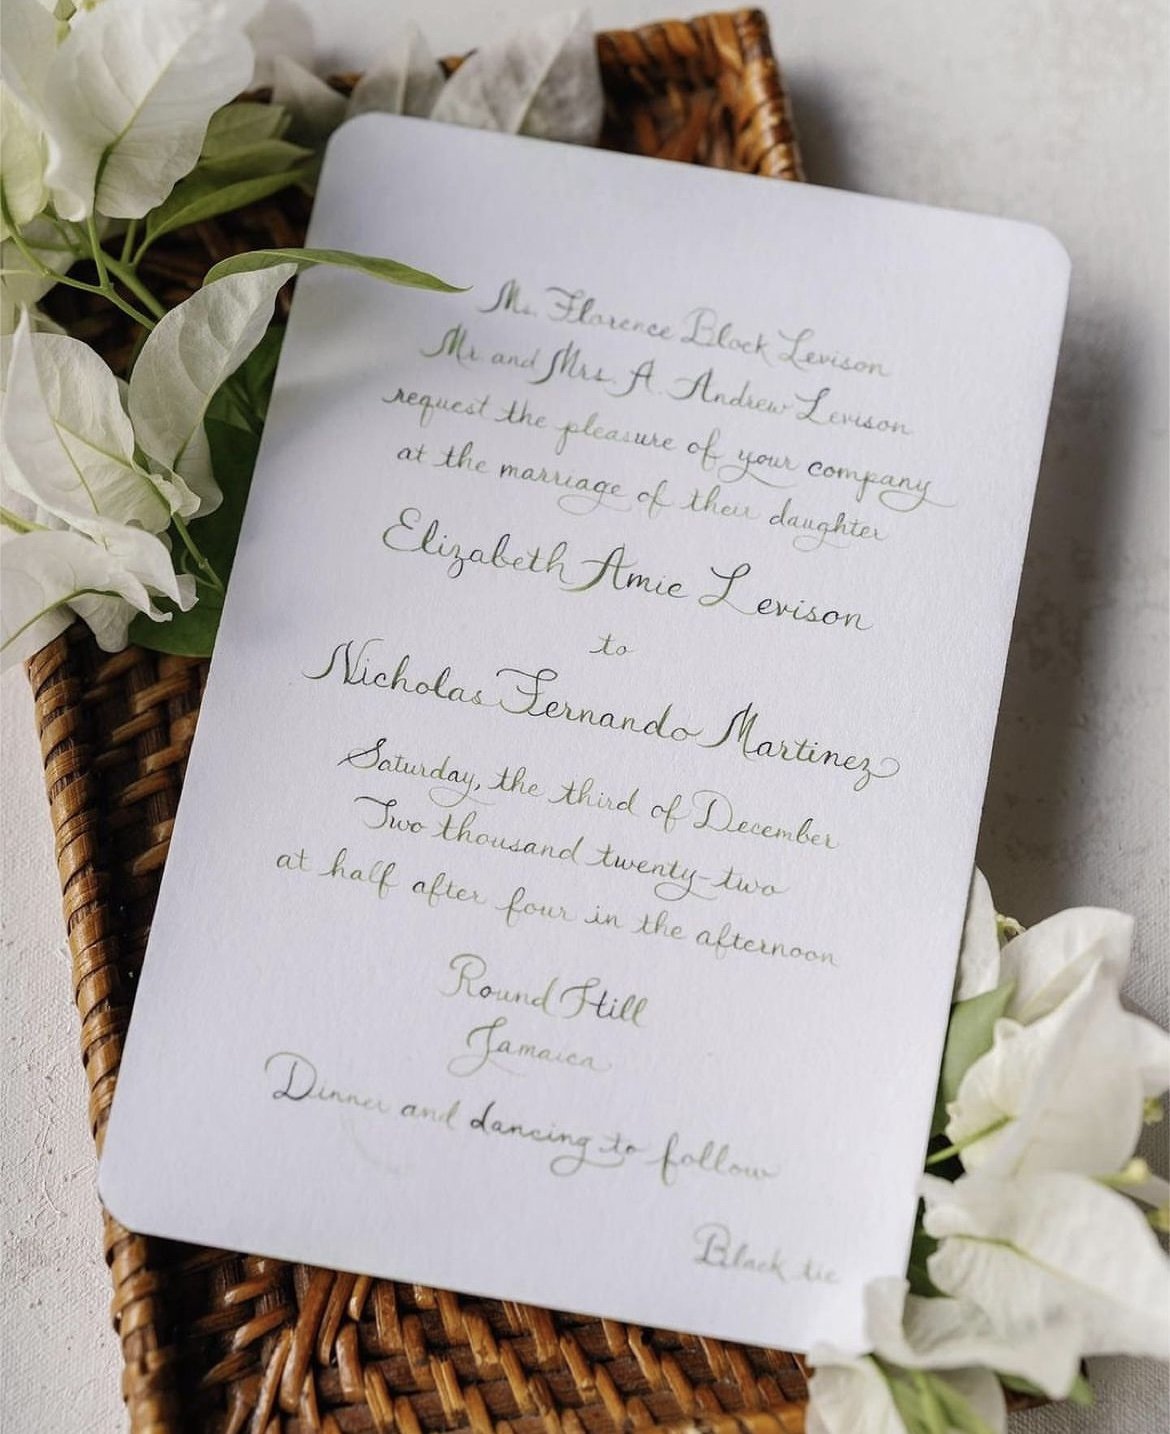 Ms. Florence Block Levison
Mr. and Mrs. A. Andrew Levison
request the pleasure of your company
at the marriage of their daughter
Elizabeth Amie Levison
to
Nicholas Fernando Martinez
Saturday, the third of December
Two thousand twenty-two
at half after four in the afternoon
Round Hill
Jamaica
Dinner and dancing to follow
Black tie